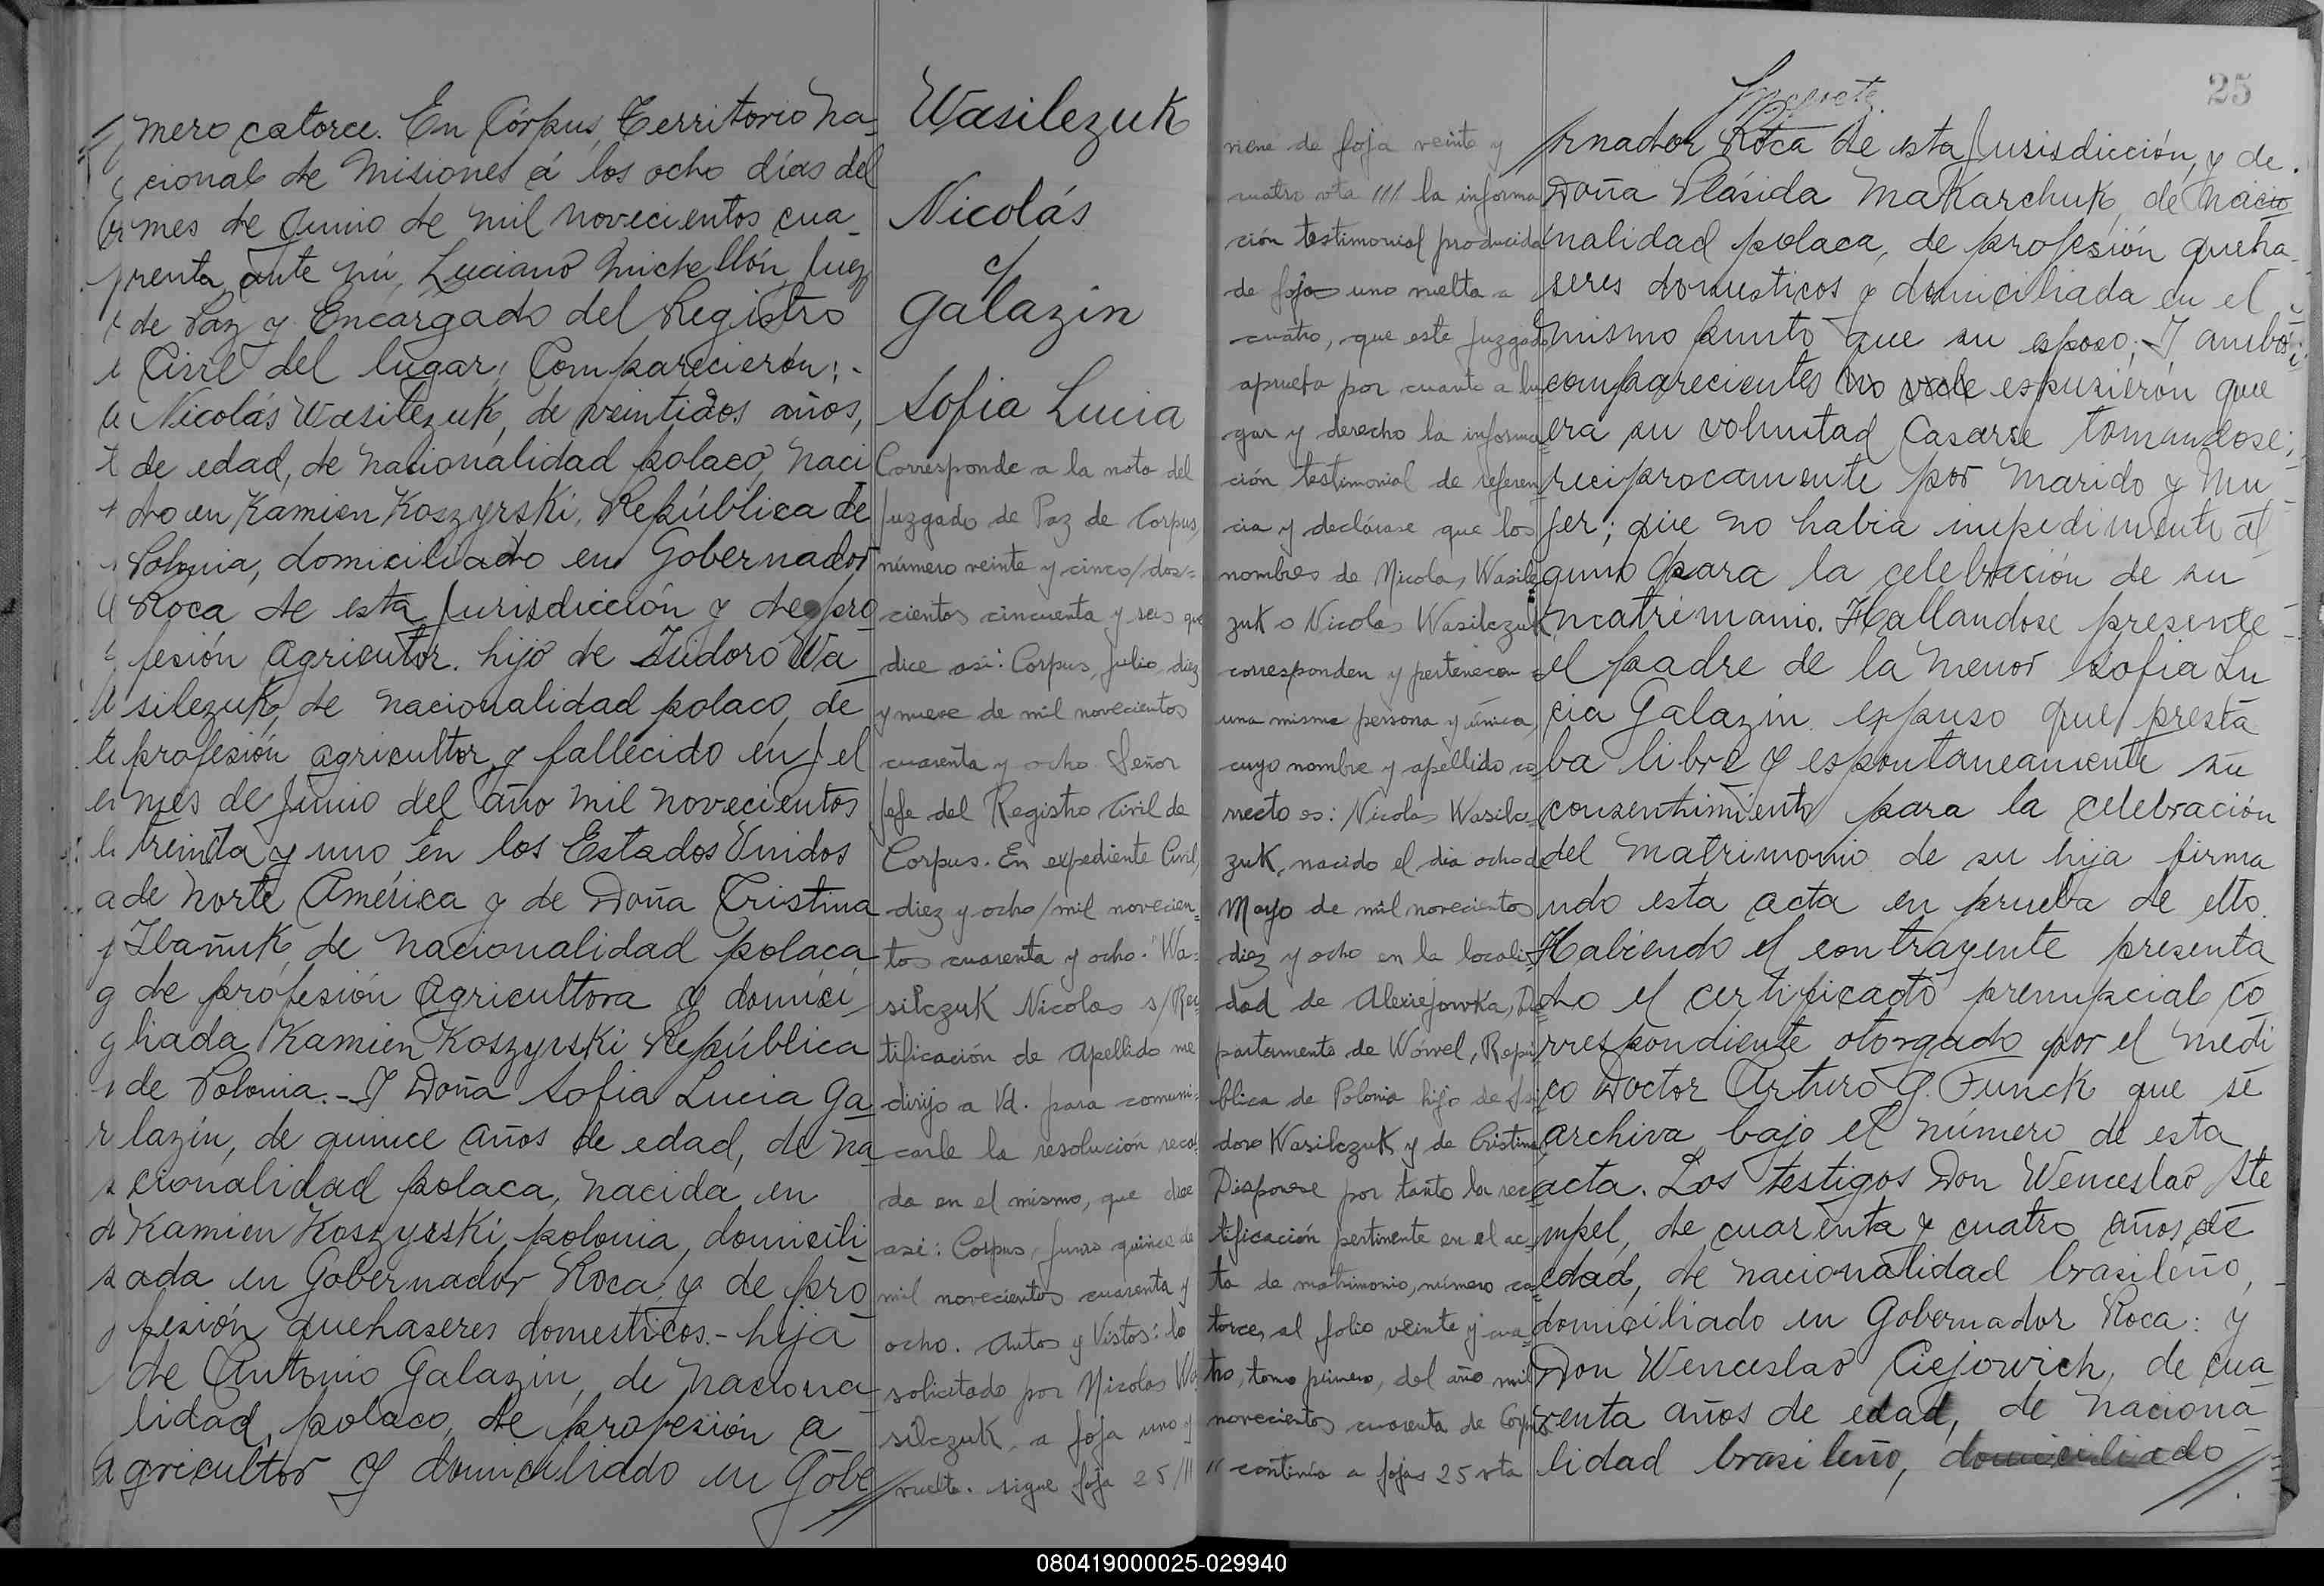 mero catorce. En Córpus, Territorio Na_
cional de Misiones á los ocho días del
mes de Junio de mil novecientos cua_
renta, ante mí, Luciano Michellón, Juez
de Paz y Encargado del Registro
Civil del lugar; Comparecierón:-
Nicolás Wasilezuk, de veintidos años,
de edad, de nacionalidad polaco, naci
do en Kamien Koszyrski, República de
Polonia, domiciliado en Gobernador
Roca de esta Jurisdicción y de pro
fesión agricutor. hijo de Isidoro Wa_
silezuk, de nacionalidad polaco, de
profesión agricultor y fallecido en el
mes de Junio del año mil novecientos
treinta y uno en los Estados Unidos
de Norte América y de Doña Cristina
Ibañuk, de nacionalidad polaca,
de profesión agricultora y domici_
liada Kamien Koszyrski República
de Polonia.- Y Doña Sofia Lucia Ga_
lazin, de quince años de edad, de na_
cionalidad polaca, nacida en
Kamien Koszyrski, polonia, domicili
ada en Gobernador Roca y de pro
fesión quehaseres domesticos.- hija
de Antonio Galazin, de naciona_
lidad, polaco, de profesión a_
agricultor y domiciliado en Gobe//
Wasilezuk
Nicolás
c/
Galazin
Sofia Lucia
Corresponde a la nota del
Juzgado de Paz de Corpus,
número veinte y cinco/dos=
cientos cincuenta y seis que
dice así: Corpus, julio diez
y nueve de mil novecientos
cuarenta y ocho. Señor
Jefe del Registro Civil de
Corpus. En expediente Civil,
diez y ocho/mil novecien=
tos cuarenta y ocho. "Wa=
silczuk Nicolas s/Rec
tificación de apellido me
dirijo a Vd. para comuni=
carle la resolución recai
da en el mismo, que dice
así: Corpus, Junio quince de
mil novecientos cuarenta y
ocho. Autos y Vistos: lo
solicitado por Nicolas Wa
silczuk, a foja uno y
vuelta. sigue foja 25///
25
viene de foja veinte y
cuatro vta /// la informa
ción testimonial producida
de fojas uno vuelta a
cuatro, que este juzgado
aprueba por cuanto a lu
gar y derecho la informa=
ción testimonial de referen
cia y declárase que los
nombres de Nicolas Wasile
zuk o Nicolas Wasilczuk
corresponden y pertenecen a
una misma persona y única,
cuyo nombre y apellido co
rrecto es: Nicolas Wasilc=
zuk, nacido el dia ocho de
Mayo de mil novecientos
diez y ocho en la locali=
dad de Alexiejowka, De
partamento de Wówel, Repú
blica de Polonia hijo de Isi
doro Wasilczuk y de Cristina
Disponese por tanto la rec=
tificación pertinente en el ac=
ta de matrimonio, número ca=
torce, al folio veinte y cua=
tro, tomo primero, del año mil
novecientos cuarenta de Corpus
" continúa a fojas 25 vta
rnador Roca de esta Jurisdicción, y de
Doña Plásida Makarchuk, de nacio
nalidad polaca, de profesión queha_
seres domesticos y domiciliada en el
mismo punto que su esposo; Y ambos
comparecientes no vale espusierón que
era su voluntad Casarse tomandose;
reciprocamente por Marido y Mu_
jer; que no habia impedimento al_
guno para la celebración de su
matrimonio. Hallandose presente
el padre de la menor Sofia Lu_
cia Galazin expuso que presta_
ba libre y espontaneamente su
consentimiento para la celebración
del matrimonio de su hija firma
ndo esta acta en prueba de ello.
Habiendo el contrayente presenta
do el certificado prenupcial co_
rrespondiente otorgado por el medi
co Doctor Arturo G. Funck que se
archiva bajo el número de esta
acta. Los testigos Don Wenceslao Ste
mpel, de cuarenta y cuatro años, de
edad, de nacionalidad brasileño,
domiciliado en Gobernador Roca: y
Don Wenceslao Ciejowich, de cua_
renta años de edad, de naciona_
lidad brasileño, domiciliado //
080419000025-029940